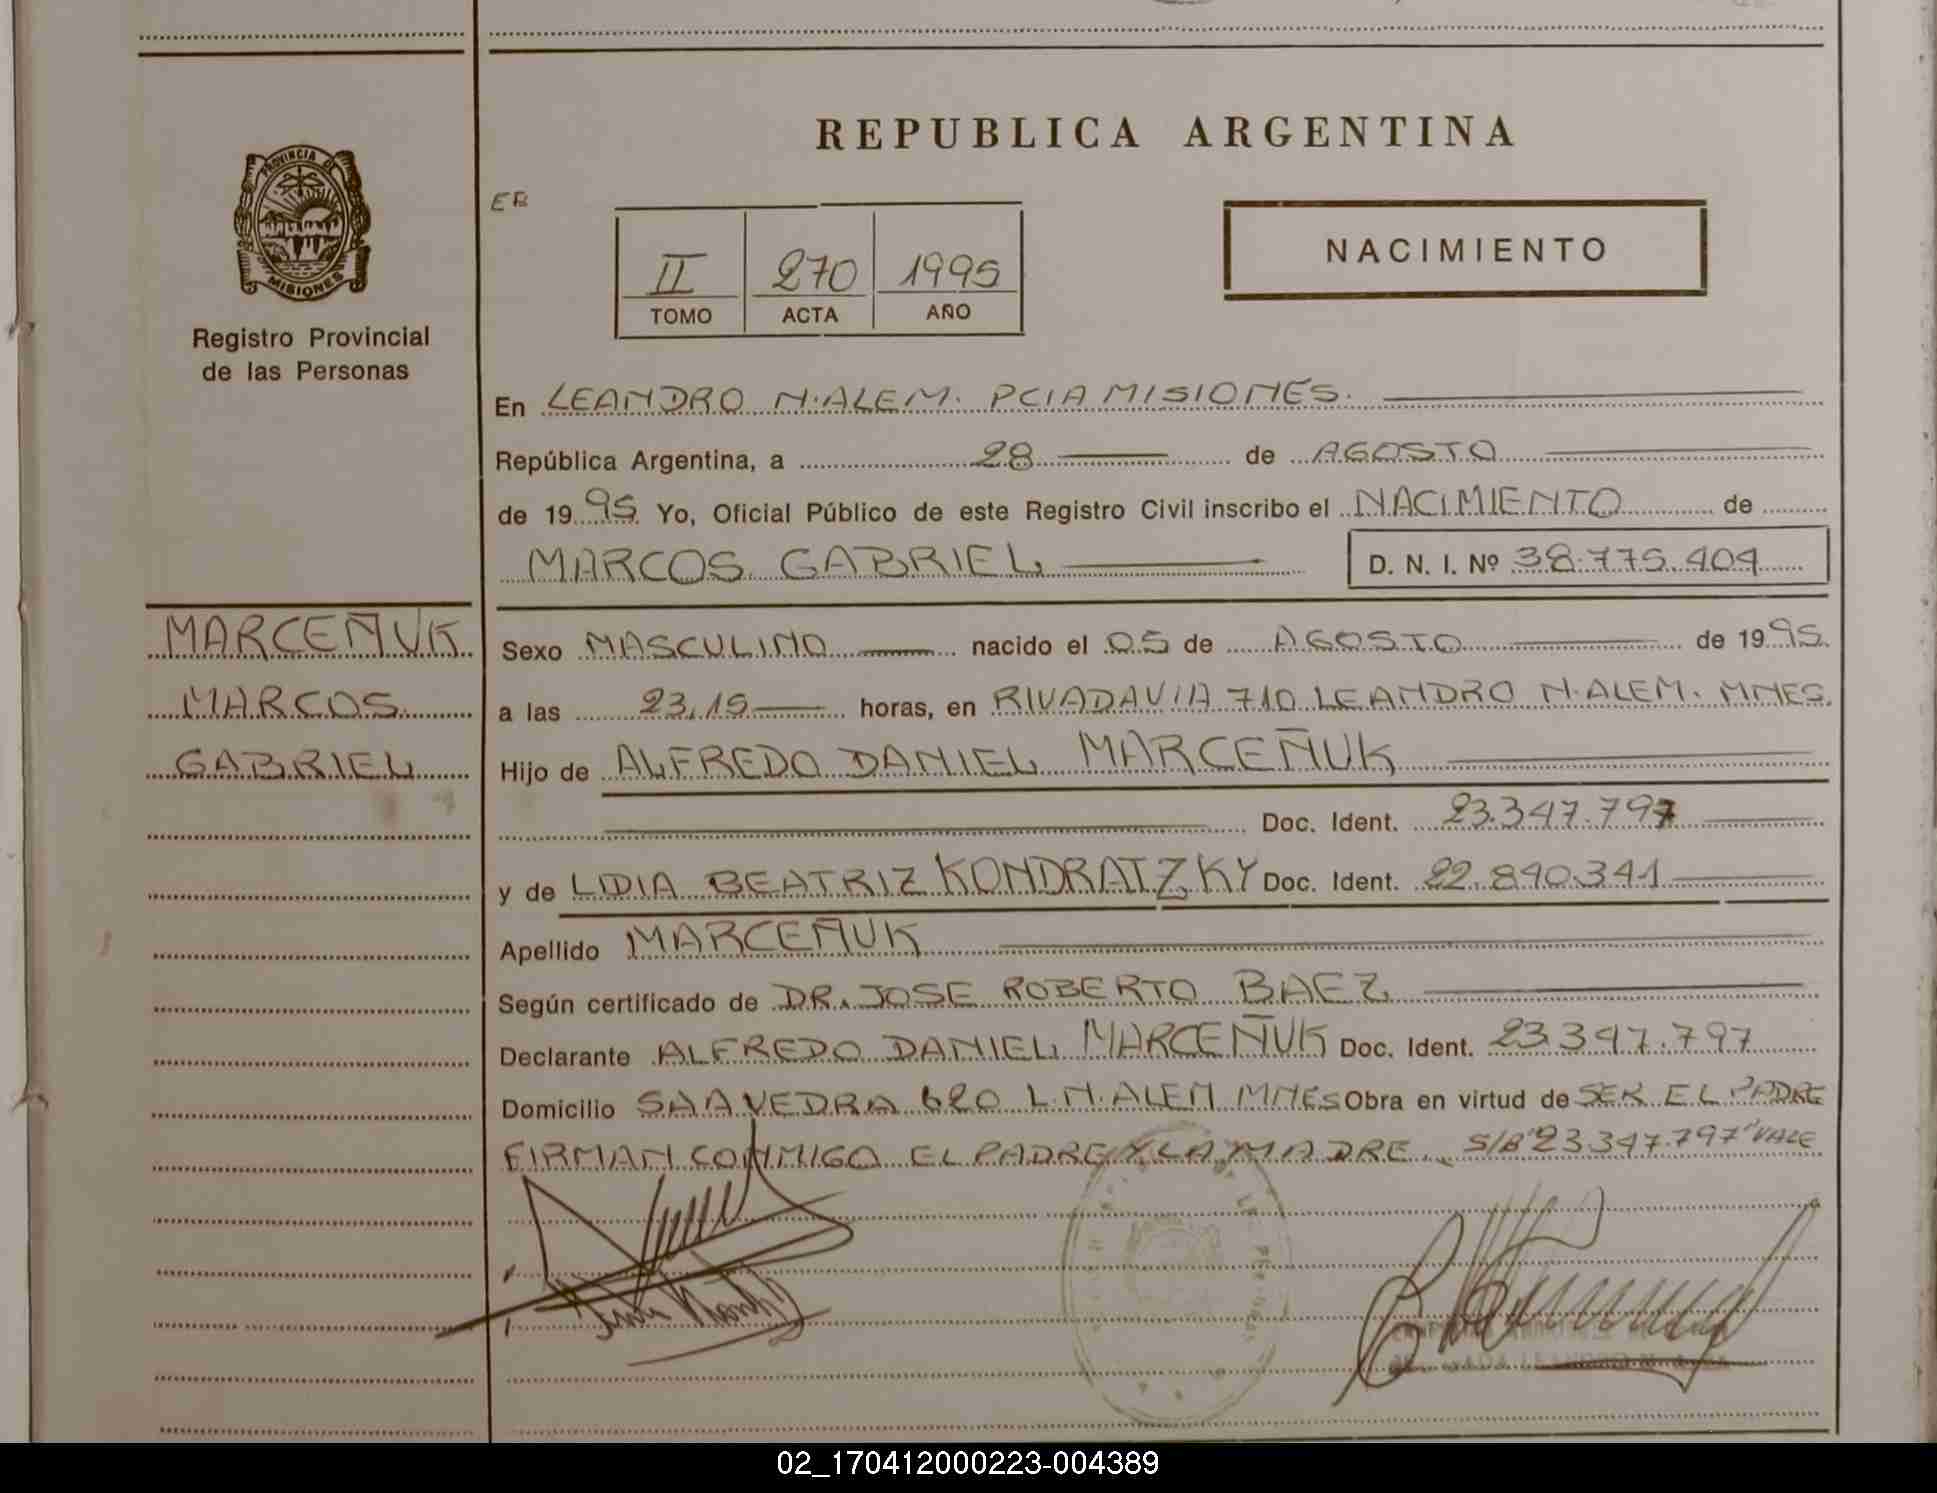 REPUBLICA ARGENTINA
PROVINCIA DE
MISIONES
Registro Provincial
de las Personas
EB
II 270 1995
TOMO ACTA AÑO
NACIMIENTO
En LEANDRO N. ALEM. PCIA MISIONES.
República Argentina, a 28 de AGOSTO
de 1995 Yo, Oficial Público de este Registro Civil inscribo el NACIMIENTO de
MARCOS GABRIEL D. N. I. Nº 38.775.404
MARCEÑUK
MARCOS
GABRIEL
Sexo MASCULINO nacido el 05 de AGOSTO de 1995.
a las 23,15 horas, en RIVADAVIA 710 LEANDRO N. ALEM. MNES.
Hijo de ALFREDO DANIEL MARCEÑUK
Doc. Ident. 23.347.797
y de LIDIA BEATRIZ KONDRATZKY Doc. Ident. 22.890.341
Apellido MARCEÑUK
Según certificado de DR. JOSE ROBERTO BAEZ
Declarante ALFREDO DANIEL MARCEÑUK Doc. Ident. 23.347.797
Domicilio SAAVEDRA 620 L.N. ALEM MNES Obra en virtud de SER EL PADRE
FIRMAN CONMIGO EL PADRE Y LA MADRE. S/B "23.347.797" VALE
02_170412000223-004389